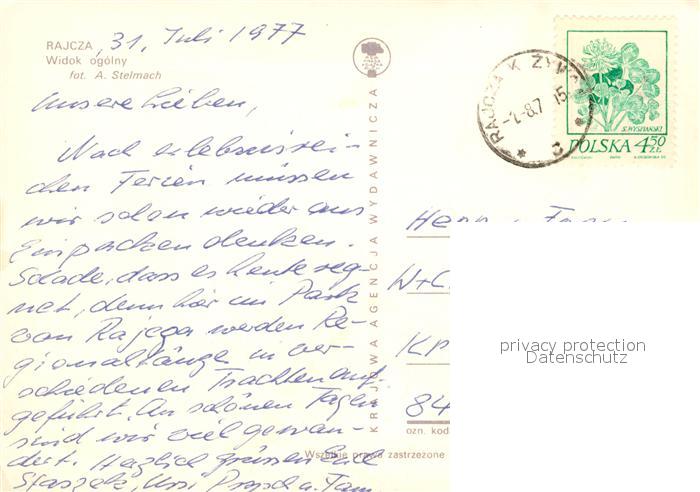 RAJCZA, 31. Juli 1977
Widok ogólny
fot. A. Stelmach
Unsere Lieben,
Nach erlebnisrei-
chen Ferien müssen
wir schon wieder ans
Einpacken denken.
Schade, dass es heute reg-
net, denn hier im Park
von Rajcza werden Re-
gionaltänze in ver-
schiedenen Trachten auf-
geführt. An schönen Tagen
sind wir viel gewan-
dert. Herzlich grüssen Euch
Staszek, Ursi
KRAJOWA AGENCJA WYDAWNICZA
RAJCZA K. ŻYWCA
-1.-8.7 15
2
S. WYSPIAŃSKI
POLSKA 4,50 ZŁ
Herr
W+C
84
ozn. kod
Wszelkie prawa zastrzeżone
privacy protection
Datenschutz